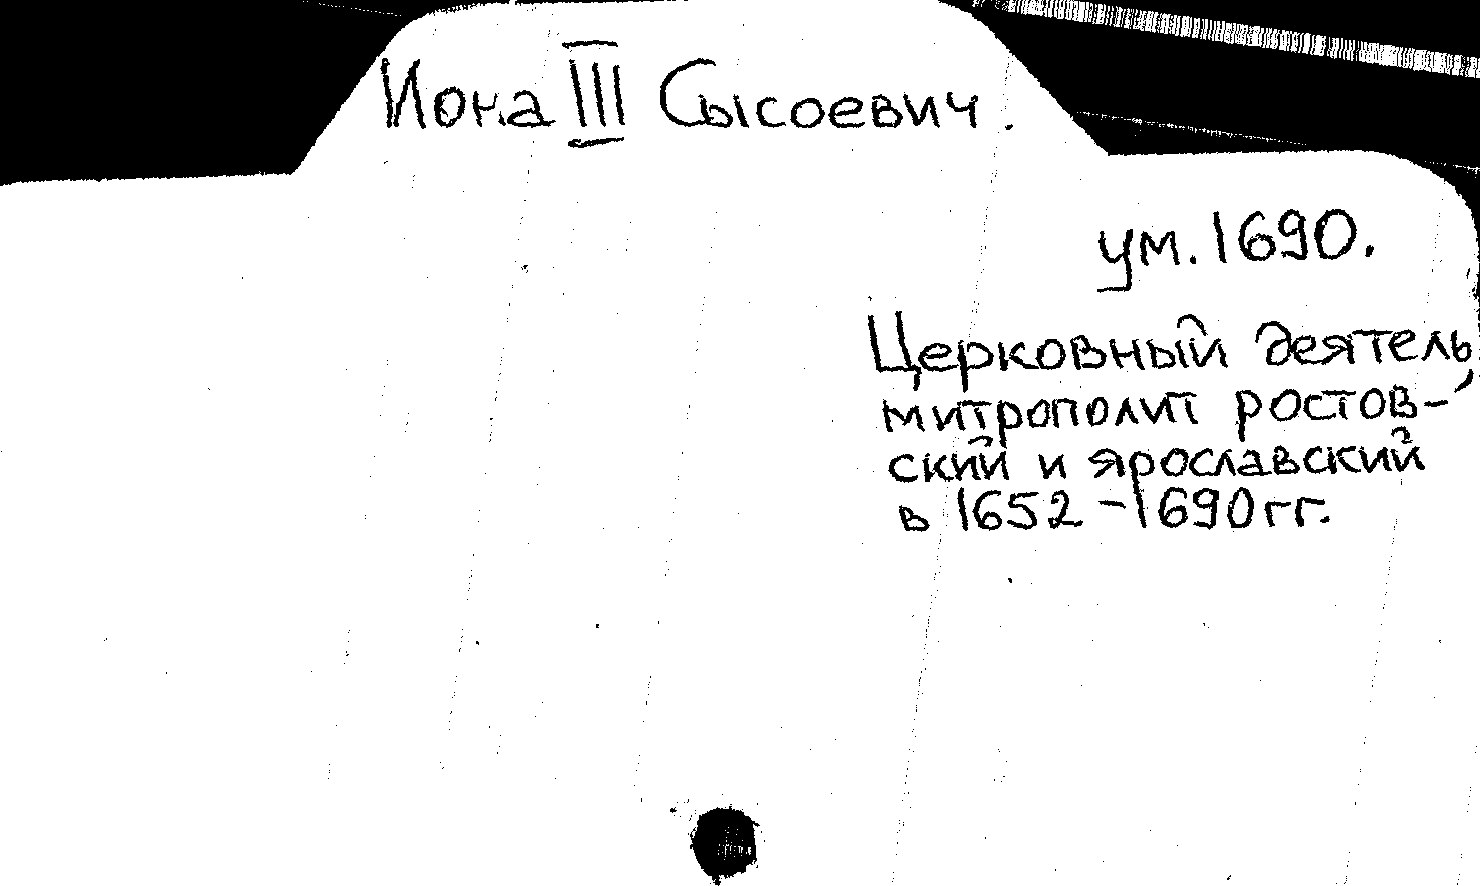 Иона III Сысоевич.
ум. 1690.
Церковный деятель,
митрополит ростов-
ский и ярославский
в 1652-1690 гг.